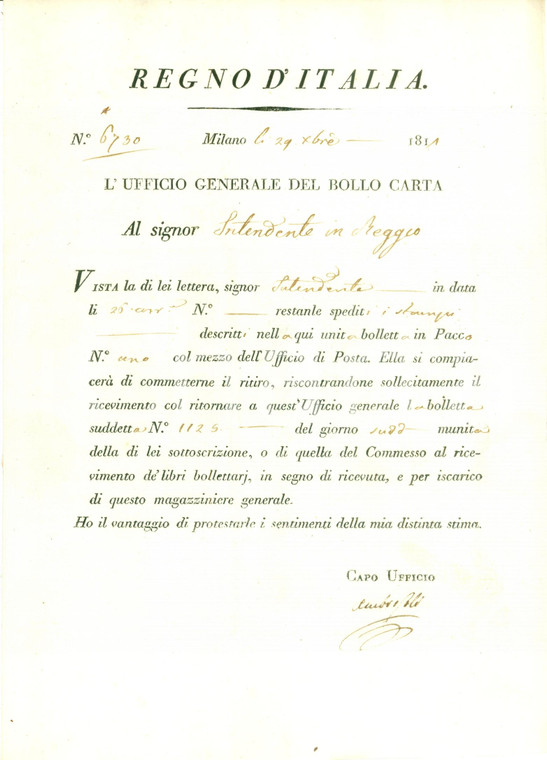 REGNO D'ITALIA.
N.º 6730 Milano li 29 xbre 1811
L'UFFICIO GENERALE DEL BOLLO CARTA
Al signor Intendente in Reggio
VISTA la di lei lettera, signor Intendente in data
li 25 corr.e N.º restanle spediti i stampi
descritti nella qui unita bolletta in Pacco
N.º uno col mezzo dell'Ufficio di Posta. Ella si compia-
cerà di commetterne il ritiro, riscontrandone sollecitamente il
ricevimento col ritornare a quest'Ufficio generale la bolletta
suddetta N.º 1125 del giorno sudd munita
della di lei sottoscrizione, o di quella del Commesso al rice-
vimento de'libri bollettarj, in segno di ricevuta, e per iscarico
di questo magazziniere generale.
Ho il vantaggio di protestarle i sentimenti della mia distinta stima.
CAPO UFFICIO